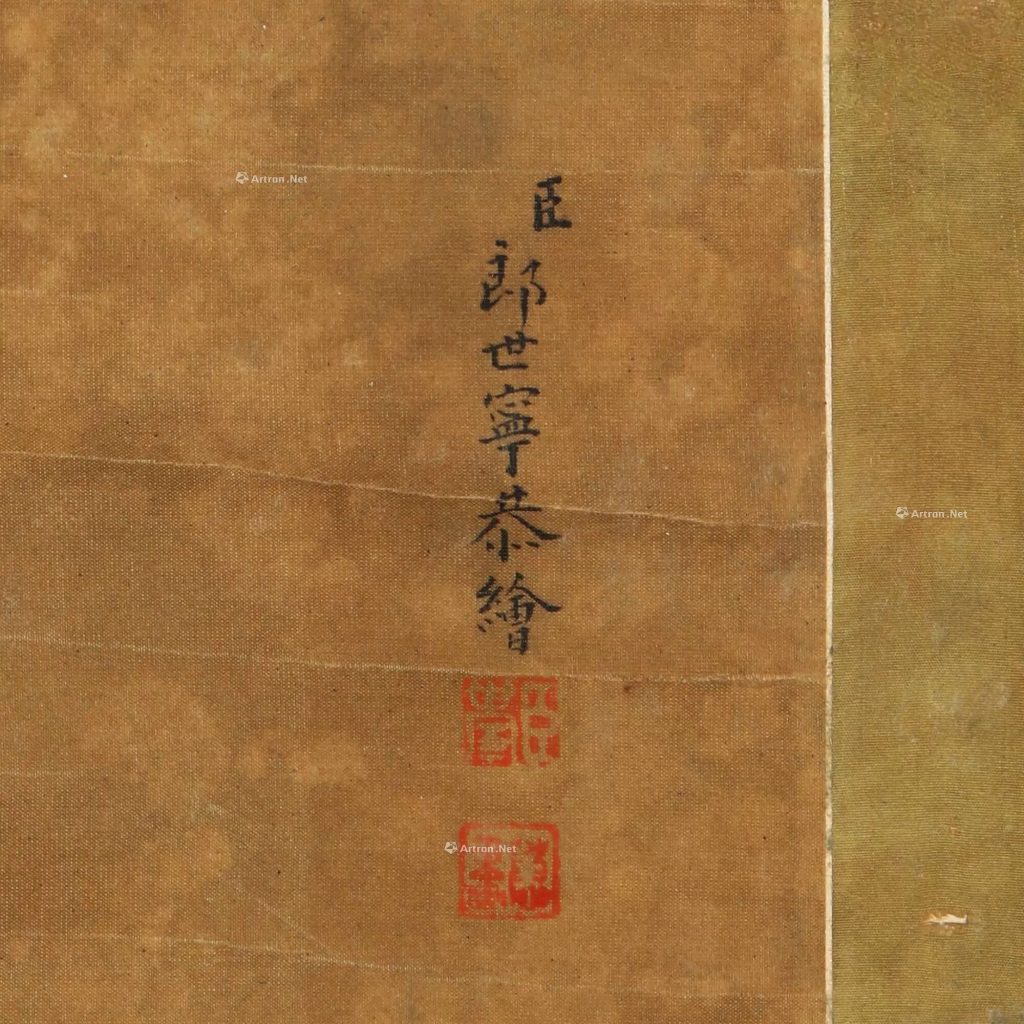 臣
郎世寧恭繪
Artron.Net
Artron.Net
Artron.Net